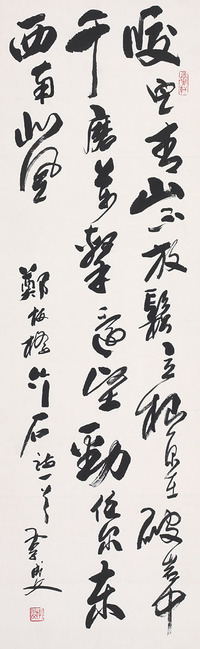 咬定青山不放鬆立根原在破岩中
千磨萬擊還堅勁任尔東
西南北風
鄭板橋竹石詩一首 李